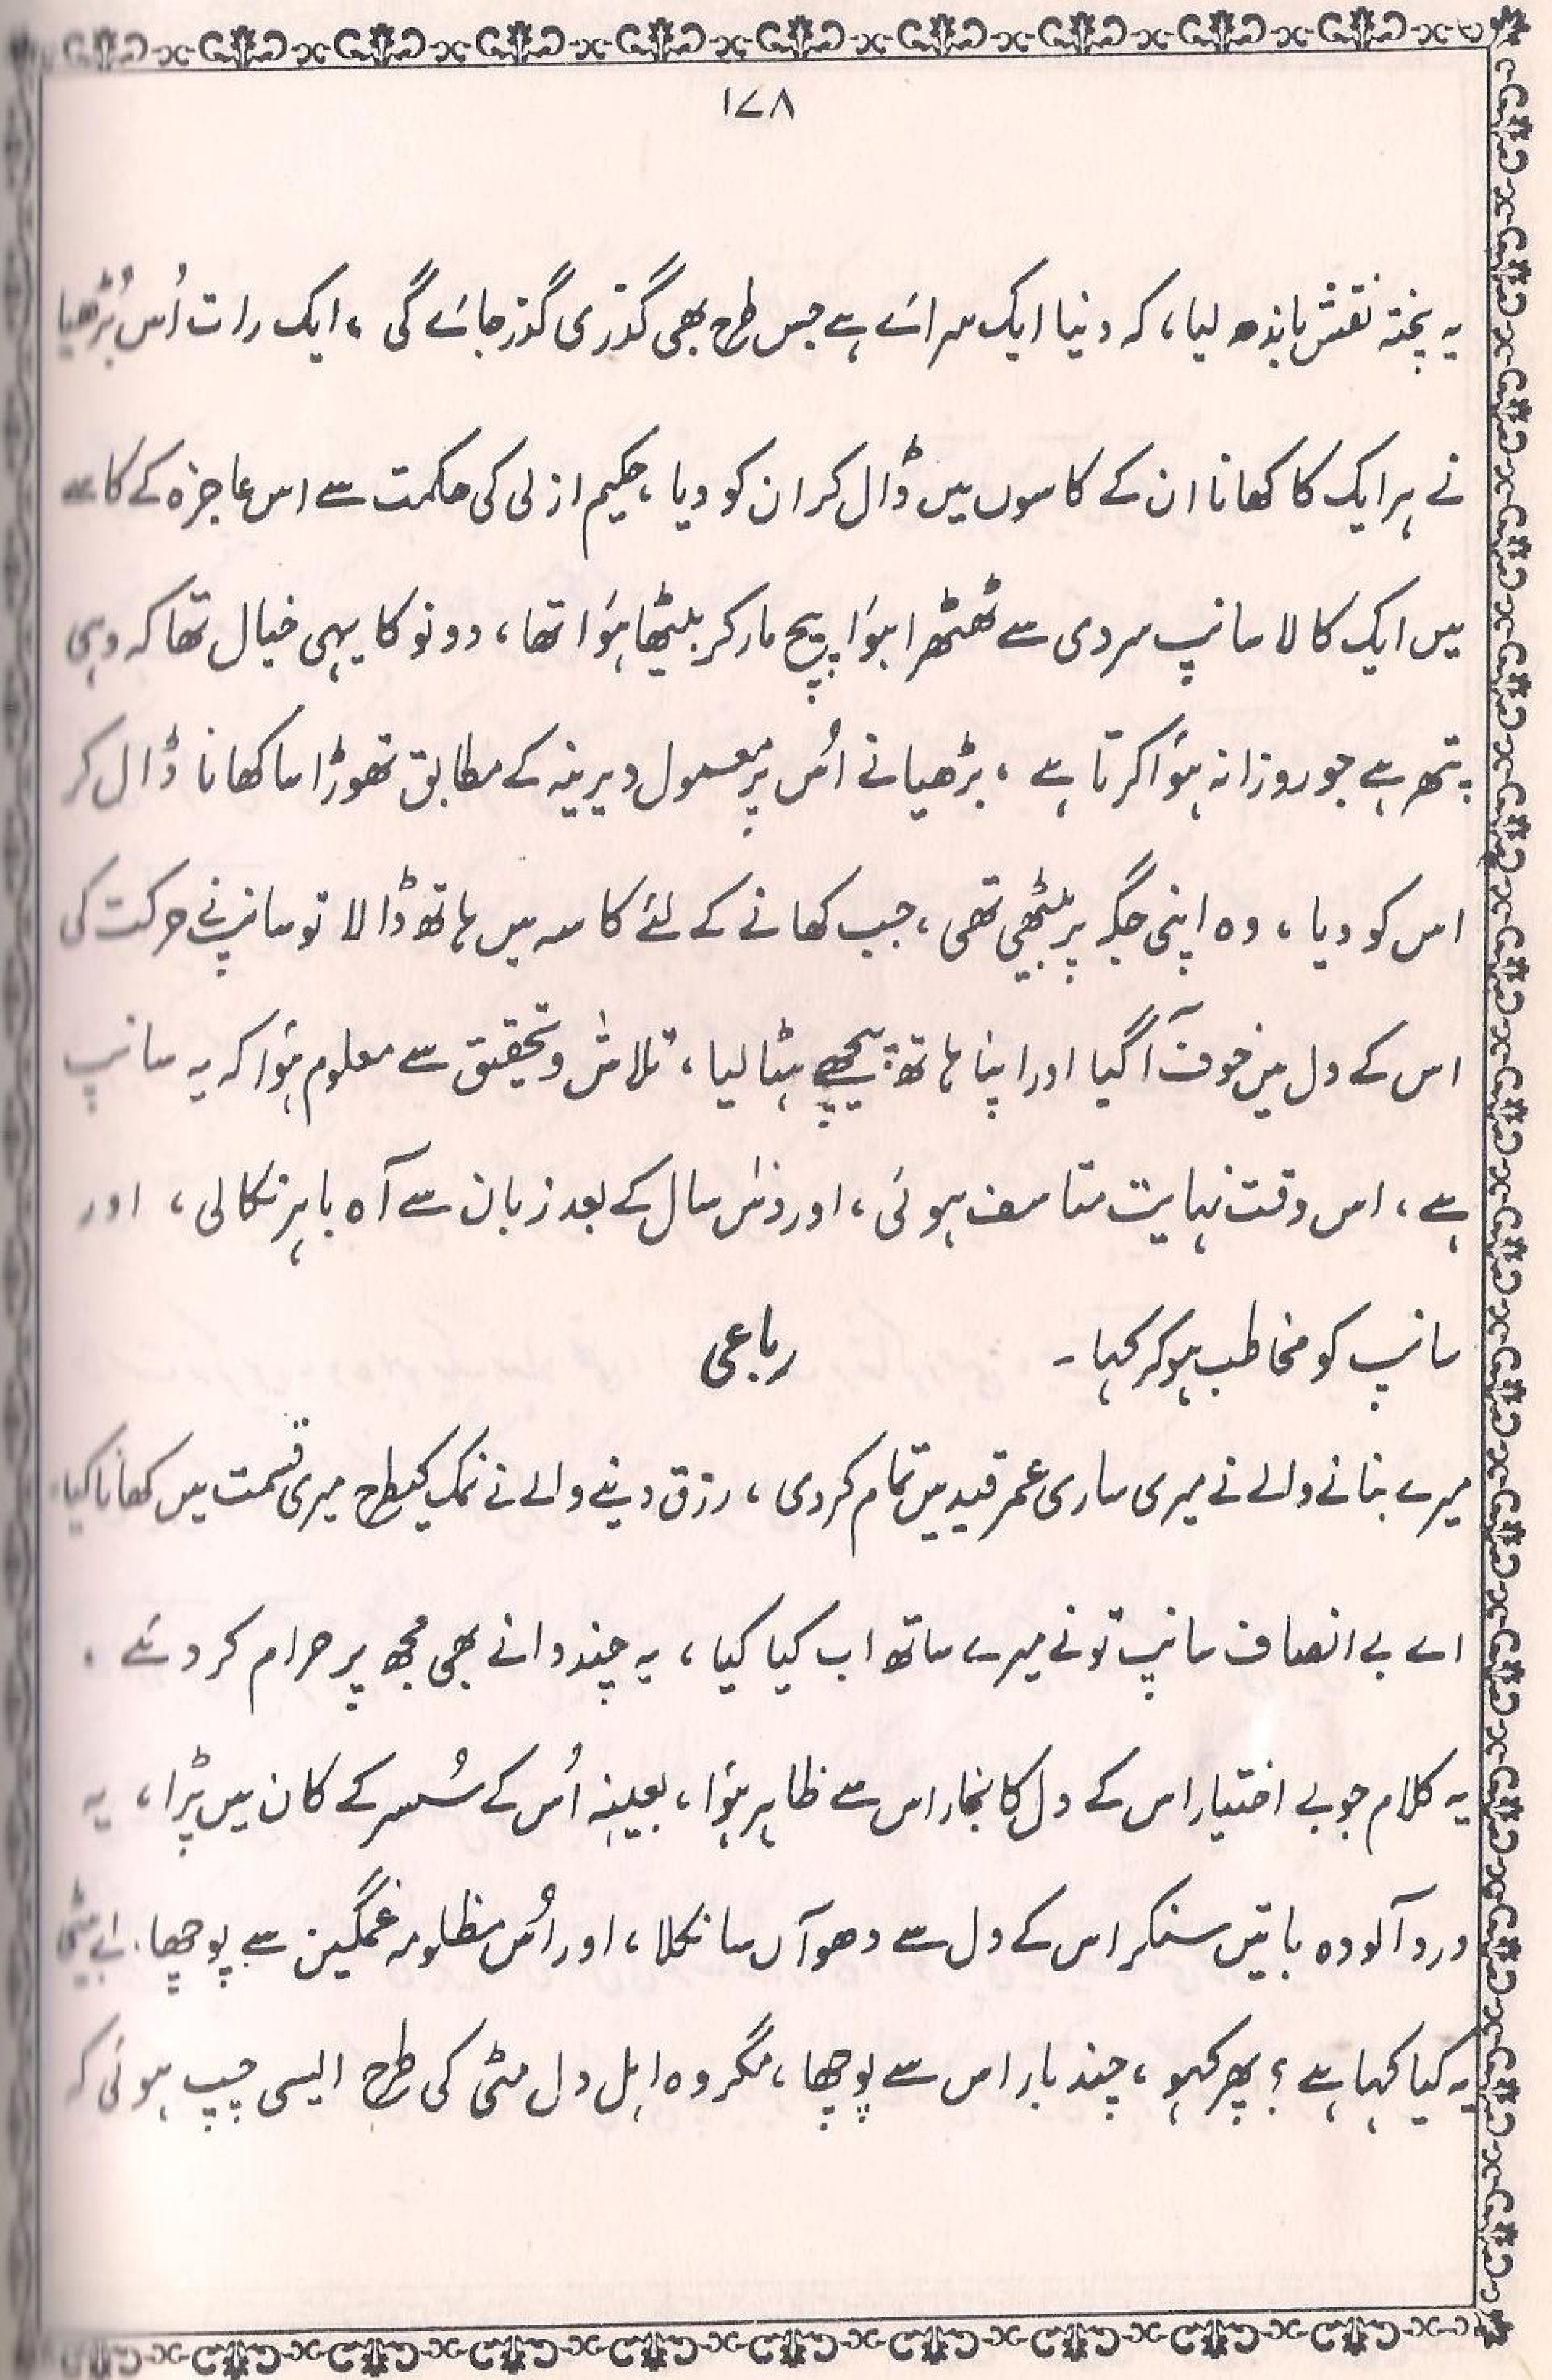 ۱۷۸
یہ پختہ نقش باندھ لیا، کہ دنیا ایک سرائے ہے جس طرح بھی گذری گذر جائے گی ، ایک رات اُس بُڑھیا
نے ہر ایک کا کھانا ان کے کاسوں میں ڈال کر ان کو دیا ، حکیم ازلی کی حکمت سے اس عاجزہ کے کاسہ
میں ایک کالا سانپ سردی سے ٹھٹھرا ہوٗا پیچ مار کر بیٹھا ہوٗا تھا ، دونو کا یہی خیال تھا کہ وہی
پتھر ہے جو روزانہ ہوٗا کرتا ہے ، بڑھیا نے اُس پر معمول دیرینہ کے مطابق تھوڑا سا کھانا ڈال کر
اس کو دیا ، وہ اپنی جگہ پر بیٹھی تھی ، جب کھانے کے لئے کاسہ میں ہاتھ ڈالا تو سانپ نے حرکت کی
اس کے دل میں خوف آ گیا اور اپنا ہاتھ پیچھے ہٹا لیا ، تلاش و تحقیق سے معلوم ہوٗا کہ یہ سانپ
ہے ، اس وقت نہایت متاسف ہوئی ، اور دس سال کے بعد زبان سے آہ باہر نکالی ، اور
سانپ کو مخاطب ہوکر کہا ۔ رباعی
میرے بنانے والے نے میری ساری عمر قید میں تمام کردی ، رزق دینے والے نے نمک کیطرح میری قسمت میں کھانا کیا ،
اے بے انصاف سانپ تو نے میرے ساتھ اب کیا کیا ، یہ چند دانے بھی مجھ پر حرام کر دئے ۔
یہ کلام جو بے اختیار اس کے دل کا بخار اس سے ظاہر ہوٗا ، بعینہٖ اُس کے سُسر کے کان میں پڑا ، یہ
درد آلودہ باتیں سنکر اس کے دل سے دھوآں سا نکلا ، اور اُس مظلومہ غمگین سے پوچھا ، اے بیٹی
یہ کیا کہا ہے ؟ پھر کہو ، چند بار اس سے پوچھا ، مگر وہ اہل دل مٹی کی طرح ایسی چپ ہوئی کہ